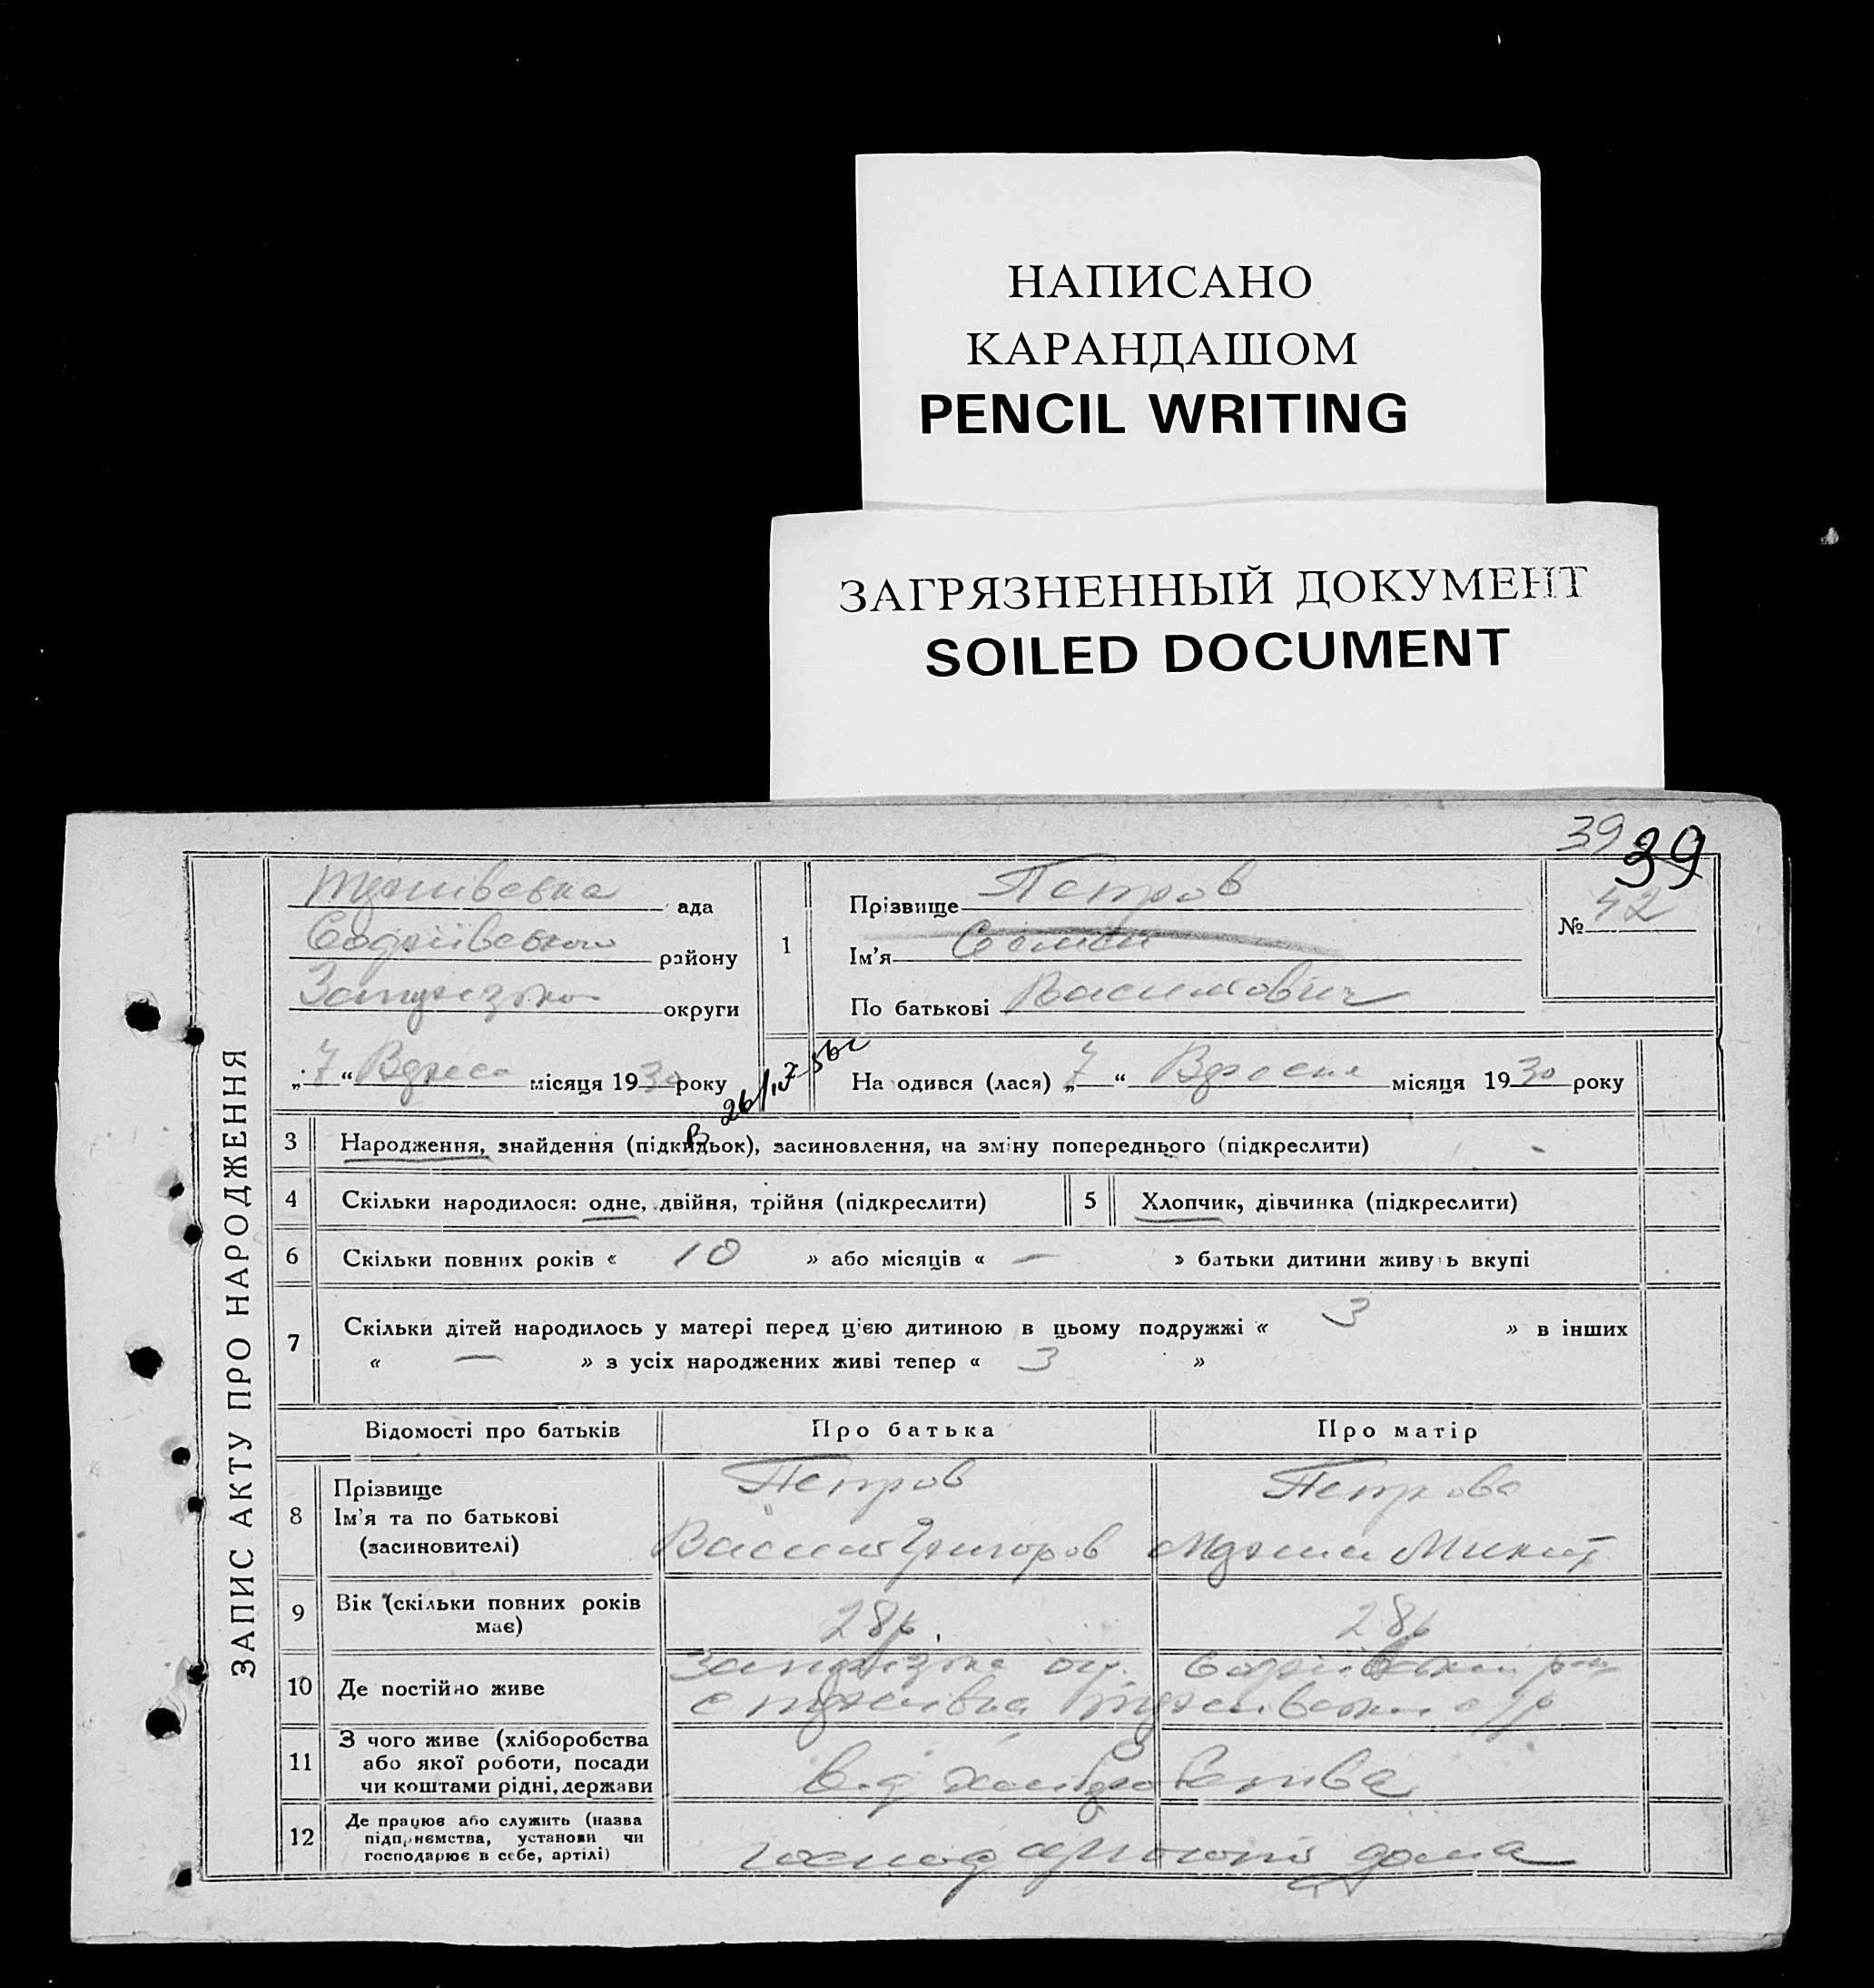 НАПИСАНО
КАРАНДАШОМ
PENCIL WRITING
ЗАГРЯЗНЕННЫЙ ДОКУМЕНТ
SOILED DOCUMENT
39 39
ЗАПИС АКТУ ПРО НАРОДЖЕННЯ
ада
району
округи
„ 7 “ місяця 1930 року
1
Прізвище Петров
Ім'я
По батькові Василович
№ 42
На одився (лася) „ 7 “ місяця 1930 року
3 Народження, знайдення (підкидьок), засиновлення, на зміну попереднього (підкреслити)
4 Скільки народилося: одне, двійня, трійня (підкреслити)
5 Хлопчик, дівчинка (підкреслити)
6 Скільки повних років « 10 » або місяців « — » батьки дитини живуть вкупі
7 Скільки дітей народилось у матері перед цією дитиною в цьому подружжі « 3 » в інших
« — » з усіх народжених живі тепер « 3 »
Відомості про батьків Про батька Про матір
8 Прізвище
Ім'я та по батькові
(засиновителі)
Петров
Василь Григоров
Петрова
9 Вік (скільки повних років
має)
28р.
28р
10 Де постійно живе
11 З чого живе (хліборобства
або якої роботи, посади
чи коштами рідні, держави
від хліборобства
12 Де працює або служить (назва
підприємства, установи чи
господарює в себе, артілі)
дома